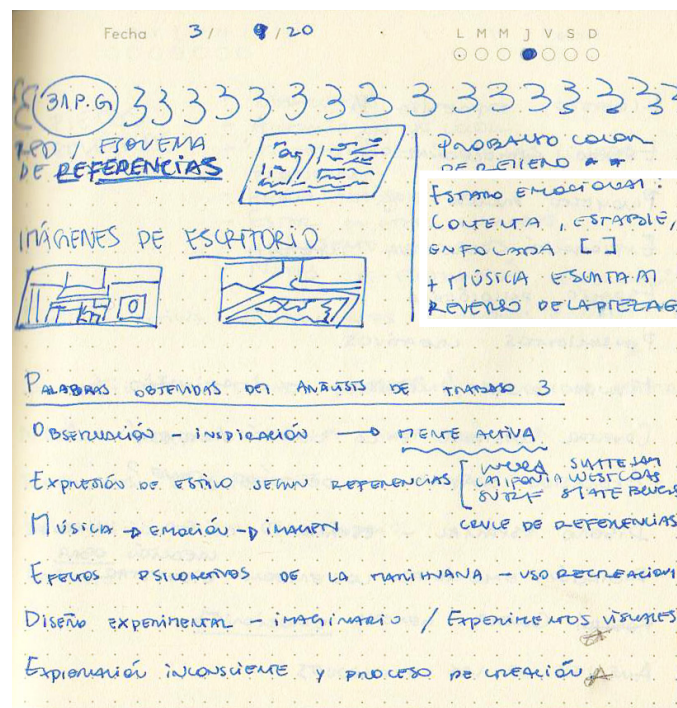 Fecha 3/ 9/20
L M M J V S D
31P.G 3 3 3 3 3 3 3 3 3 3 3 3 3 3 3 3
RED / ESQUEMA
DE REFERENCIAS
PROBANDO COLOR
DE RELLENO
ESTADO EMOCIONAL:
CONTENTA, ESTABLE,
ENFOCADA [ ]
+ MÚSICA ESCRITA AL
REVERSO DE LA PIEZA G
IMÁGENES DE ESCRITORIO
PALABRAS OBTENIDAS DEL ANÁLISIS DE TRABAJO 3
OBSERVACIÓN - INSPIRACIÓN → MENTE ACTIVA
EXPRESIÓN DE ESTILO SEGÚN REFERENCIAS [
CALIFORNIA WEST COAS
SURF
MÚSICA → EMOCIÓN → IMAGEN CRUCE DE REFERENCIAS
EFECTOS PSICOACTIVOS DE LA MARIHUANA - USO RECREACION
DISEÑO EXPERIMENTAL - IMAGINARIO / EXPERIMENTOS VISUALES
EXPLORACIÓN INCONSCIENTE Y PROCESO DE CREACIÓN